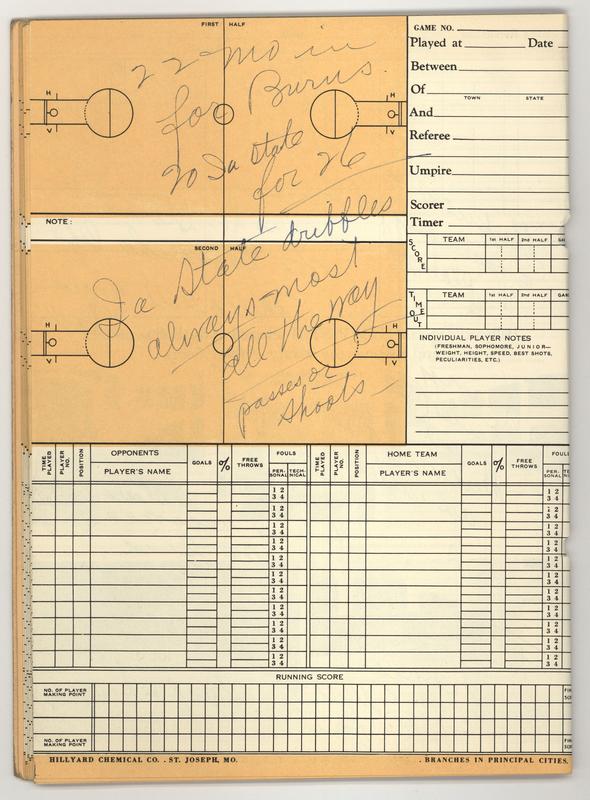 FIRST HALF
22-mo in
for Burns.
20 Ia State
for 26
H
V
H
V
NOTE:
SECOND HALF
Ia State dribbles
always most
all the way
passes or
shoots
H
V
H
V
GAME NO.
Played at Date
Between
Of
TOWN STATE
And
Referee
Umpire
Scorer
Timer
SCORE TEAM 1st HALF 2nd HALF
TIME OUT TEAM 1st HALF 2nd HALF GAM
INDIVIDUAL PLAYER NOTES
(FRESHMAN, SOPHOMORE, JUNIOR—
WEIGHT, HEIGHT, SPEED, BEST SHOTS,
PECULIARITIES, ETC.)
TIME PLAYED PLAYER NO. POSITION OPPONENTS PLAYER'S NAME GOALS % FREE THROWS FOULS PERSONAL TECHNICAL
TIME PLAYED PLAYER NO. POSITION HOME TEAM PLAYER'S NAME GOALS % FREE THROWS FOUL PERSONAL
1 2 1 2
3 4 3 4
1 2 1 2
3 4 3 4
1 2 1 2
3 4 3 4
1 2 1 2
3 4 3 4
1 2 1 2
3 4 3 4
1 2 1 2
3 4 3 4
1 2 1 2
3 4 3 4
1 2 1 2
3 4 3 4
1 2 1 2
3 4 3 4
1 2 1 2
3 4 3 4
1 2 1 2
3 4 3 4
RUNNING SCORE
NO. OF PLAYER
MAKING POINT
NO. OF PLAYER
MAKING POINT
HILLYARD CHEMICAL CO. . ST. JOSEPH, MO. . BRANCHES IN PRINCIPAL CITIES.